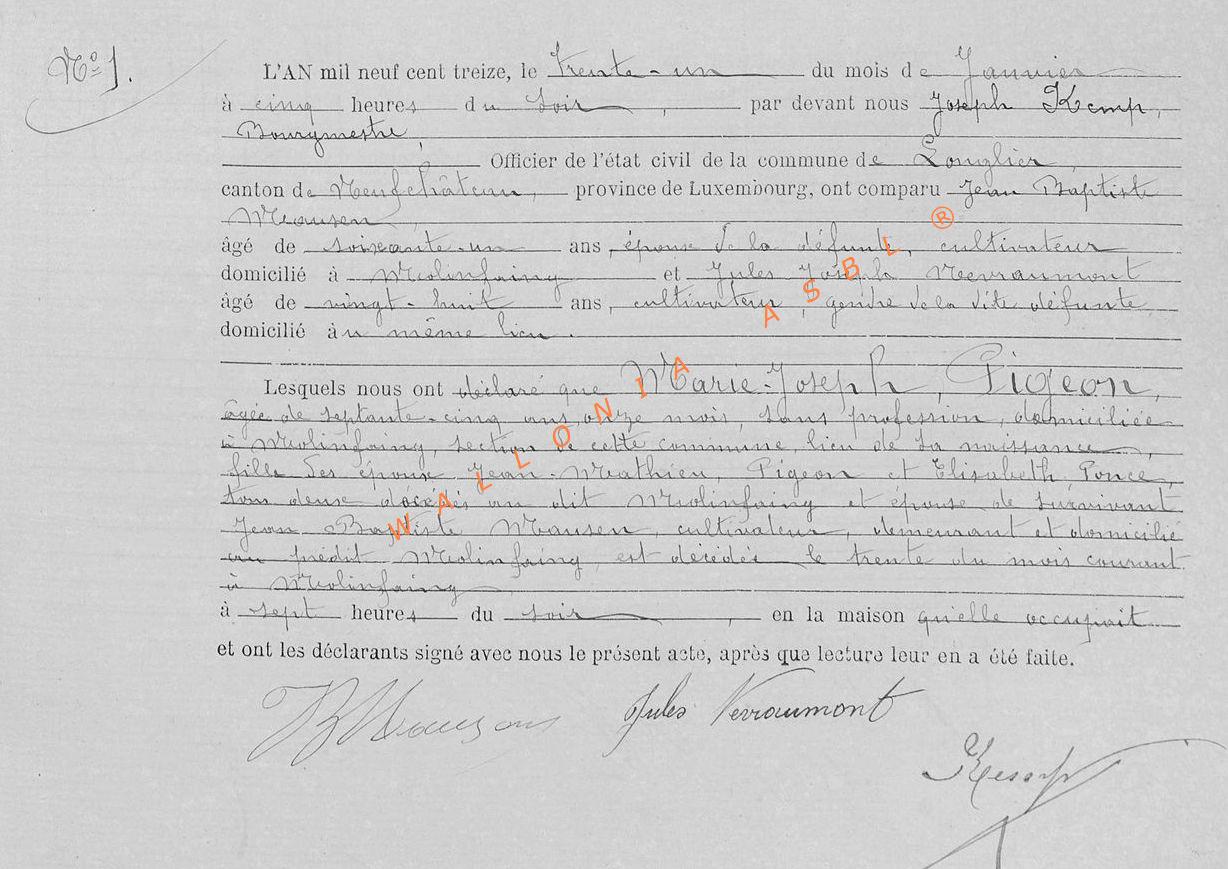 Nº 1.
L'AN mil neuf cent treize, le trente-un du mois de Janvier
à cinq heures du soir, par devant nous Joseph Kemp,
Bourgmestre,
Officier de l'état civil de la commune de Longlier,
canton de Neufchâteau, province de Luxembourg, ont comparu Jean Baptiste
Mausen,
âgé de soixante-un ans, époux de la défunte, cultivateur
domicilié à Molinfaing et Jules Joseph Nevraumont
âgé de vingt-huit ans, cultivateur, gendre de la dite défunte
domicilié au même lieu.
Lesquels nous ont déclaré que Marie-Joseph, Pigeon,
âgée de septante-cinq ans onze mois, sans profession, domiciliée
à Molinfaing, section de cette commune, lieu de sa naissance,
fille des époux Jean-Mathieu, Pigeon et Elisabeth, Ponce,
tous deux décédés au dit Molinfaing et épouse de survivant
Jean Baptiste Mausen, cultivateur, demeurant et domicilié
au prédit Molinfaing, est décédée le trente du mois courant
à Molinfaing
à sept heures du soir, en la maison qu'elle occupait
et ont les déclarants signé avec nous le présent acte, après que lecture leur en a été faite.
Jules Nevraumont
Kemp
WALLONIA ASBL ®